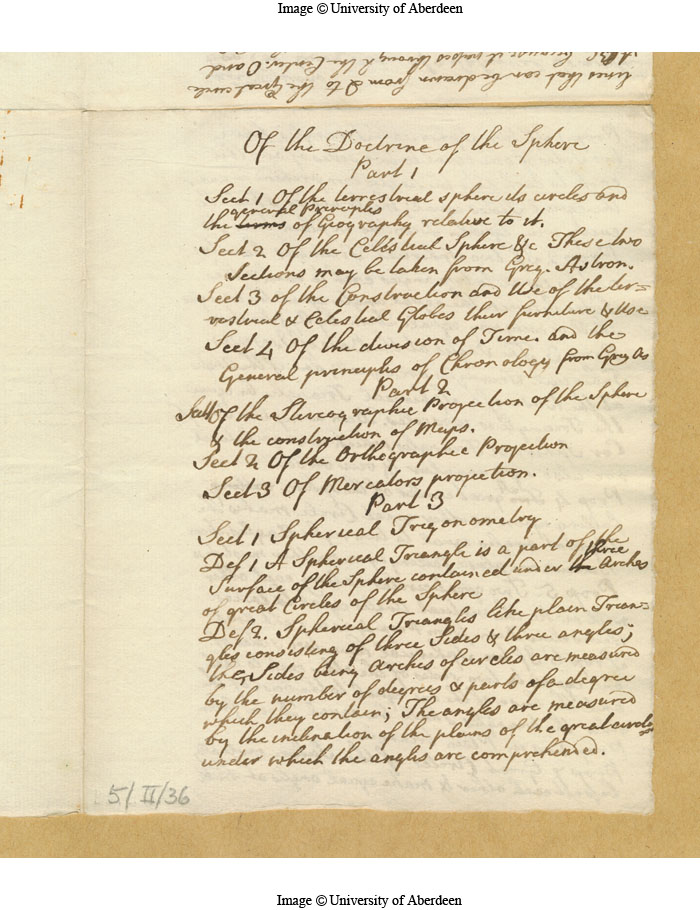 Image © University of Aberdeen
lines that can be drawn from D to the Great circle
ABC because it passes through the Center O and
Of the Doctrine of the Sphere
Part 1
Sect 1 Of the terrestrial sphere its circles and
general Principles
the terms of Geography relative to it.
Sect 2 Of the Celestial Sphere &c These two
Sections may be taken from Greg. Astron.
Sect 3 of the Construction and Use of the ter=
restrial & Celestial Globes their furniture & Use
Sect 4 Of the division of Time. and the
General principles of Chronology from Greg As
Part 2
Sect 1 Of the Stereographic Projection of the Sphere
& the construction of Maps.
Sect 2 Of the Orthographic Projection
Sect 3 Of Mercators projection.
Part 3
Sect 1 Spherical Trigonometry
Def 1 A Spherical Triangle is a part of the
three
Surface of the Sphere contained under the Arches
of great Circles of the Sphere
Def 2. Spherical Triangles like plain Trian=
gles consisting of three Sides & three angles;
the Sides being arches of circles are measured
by the number of degrees & parts of a degree
which they contain; The angles are measured
by the inclination of the plains of the great circles
under which the angles are comprehended.
5/II/36
Image © University of Aberdeen